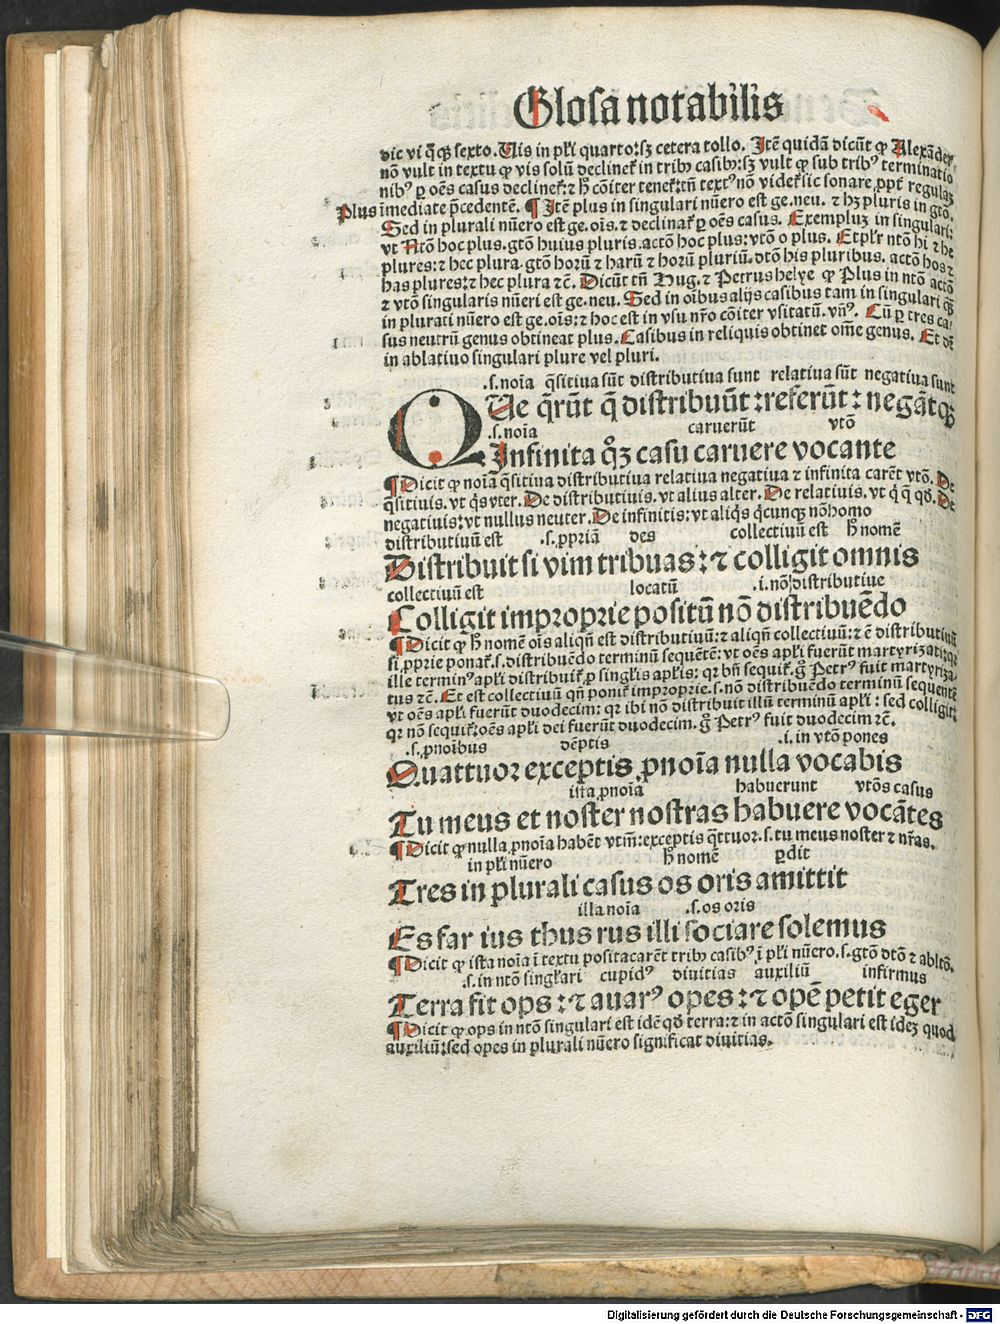 Glosa notabilis
dic vi q̄ꝫ sexto. Uis in pl̓i quarto: sꝫ cetera tollo. Itē quidā dicūt ꝙ Alexāder
nō vult in textu ꝙ vis solū declinet̉ in tribꝰ casibꝰ: sꝫ vult ꝙ sub tribꝰ terminatio
nibꝰ ꝑ oēs casus declinet̉: ⁊ h̄ cōiter tenet̉: tn̄ textꝰ nō videt̉ sic sonare, ꝓpt̓ regulaꝫ
Plus īmediate p̄cedentē. ¶ Itē plus in singulari nūero est ge. neu. ⁊ hꝫ pluris in gtō.
Sed in plurali nūero est ge. oīs. ⁊ declinat̉ ꝑ oēs casus. Exempluꝫ in singulari:
vt Ntō hoc plus. gtō huius pluris. actō hoc plus: vtō o plus. Et pl̓r ntō hi ⁊ he
plures: ⁊ hec plura. gtō horū ⁊ harū ⁊ horū pluriū. dtō his pluribus. actō hos ⁊
has plures: ⁊ hec plura ⁊c̄. Dicūt tn̄ Hug. ⁊ Petrus helye ꝙ Plus in ntō actō
⁊ vtō singularis nūeri est ge. neu. Sed in oībus alijs casibus tam in singulari q̄ꝫ
in plurali nūero est ge. oīs: ⁊ hoc est in vsu nr̄o cōiter vsitatū. vn̄ꝰ. Cū ꝑ tres ca
sus neutrū genus obtineat plus. Casibus in reliquis obtinet om̄e genus. Et dꝫ
in ablatiuo singulari plure vel pluri.
.s. noīa q̄sitiua sūt distributiua sunt relatiua sūt negatiua sunt
QUe q̄rūt q̄ distribuūt: referūt: negāt qꝫ
.s. noīa caruerūt vtō
Infinita qͦꝫ casu caruere vocante
¶ Dicit ꝙ noīa q̄sitiua distributiua relatiua negatiua ⁊ infinita carēt vtō. De
q̄sitiuis. vt q̓s vter. De distributiuis. vt alius alter. De relatiuis. vt q̓ q̄ qđ. De
negatiuis: vt nullus neuter. De infinitis: vt aliq̓s q̓cunqꝫ nō homo
distributiuū est .s. ꝓpriā des collectiuū est h̄ nomē
Distribuit si vim tribuas: ⁊ colligit omnis
collectiuū est locatū .i. nō distributiue
Colligit improprie positū nō distribuēdo
¶ Dicit ꝙ h̄ nomē oīs aliqn̄ est distributiuū: ⁊ aliqn̄ collectiuū: ⁊ ē distributiuū
si, ꝓprie ponat̉. s. distribuēdo terminū sequētē: vt oēs apl̓i fuerūt martyrizati: qꝛ
ille terminꝰ apl̓i distribuit̉ ꝓ singl̓is apl̓is: qꝛ bn̄ sequit̉. g̊ Petrꝰ fuit martyriza
tus ⁊c̄. Et est collectiuū qn̄ ponit̉ improprie. s. nō distribuēdo terminū sequentē
vt oēs apl̓i fuerūt duodecim: qꝛ ibi nō distribuit illū terminū apl̓i: sed colligit:
qꝛ nō sequit̉: oēs apl̓i dei fuerūt duodecim. g̊ Petrꝰ fuit duodecim ⁊c̄.
.s. ꝓnoībus dēptis .i. in vtō pones
Quattuor exceptis ꝓnoīa nulla vocabis
illa ꝓnoīa habuerunt vtōs casus
Tu meus et noster nostras habuere vocātes
¶ Dicit ꝙ nulla ꝓnoīa habēt vtm̄: exceptis q̄ttuor. s. tu meus noster ⁊ nr̄as.
in pl̓i nūero h̄ nomē ꝑdit
Tres in plurali casus os oris amittit
illa noīa .s. os oris
Es far ius thus rus illi sociare solemus
¶ Dicit ꝙ ista noīa ī textu posita carēt tribꝰ casibꝰ ī pl̓i nūero. s. gtō dtō ⁊ abltō.
.s. in ntō singl̓ari cupidꝰ diuitias auxiliū infirmus
Terra fit ops: ⁊ auarꝰ opes: ⁊ opē petit eger
¶ Dicit ꝙ ops in ntō singulari est idē qđ terra: ⁊ in actō singulari est ideꝫ quod
auxiliū: sed opes in plurali nūero significat diuitias.
Digitalisierung gefördert durch die Deutsche Forschungsgemeinschaft - DFG